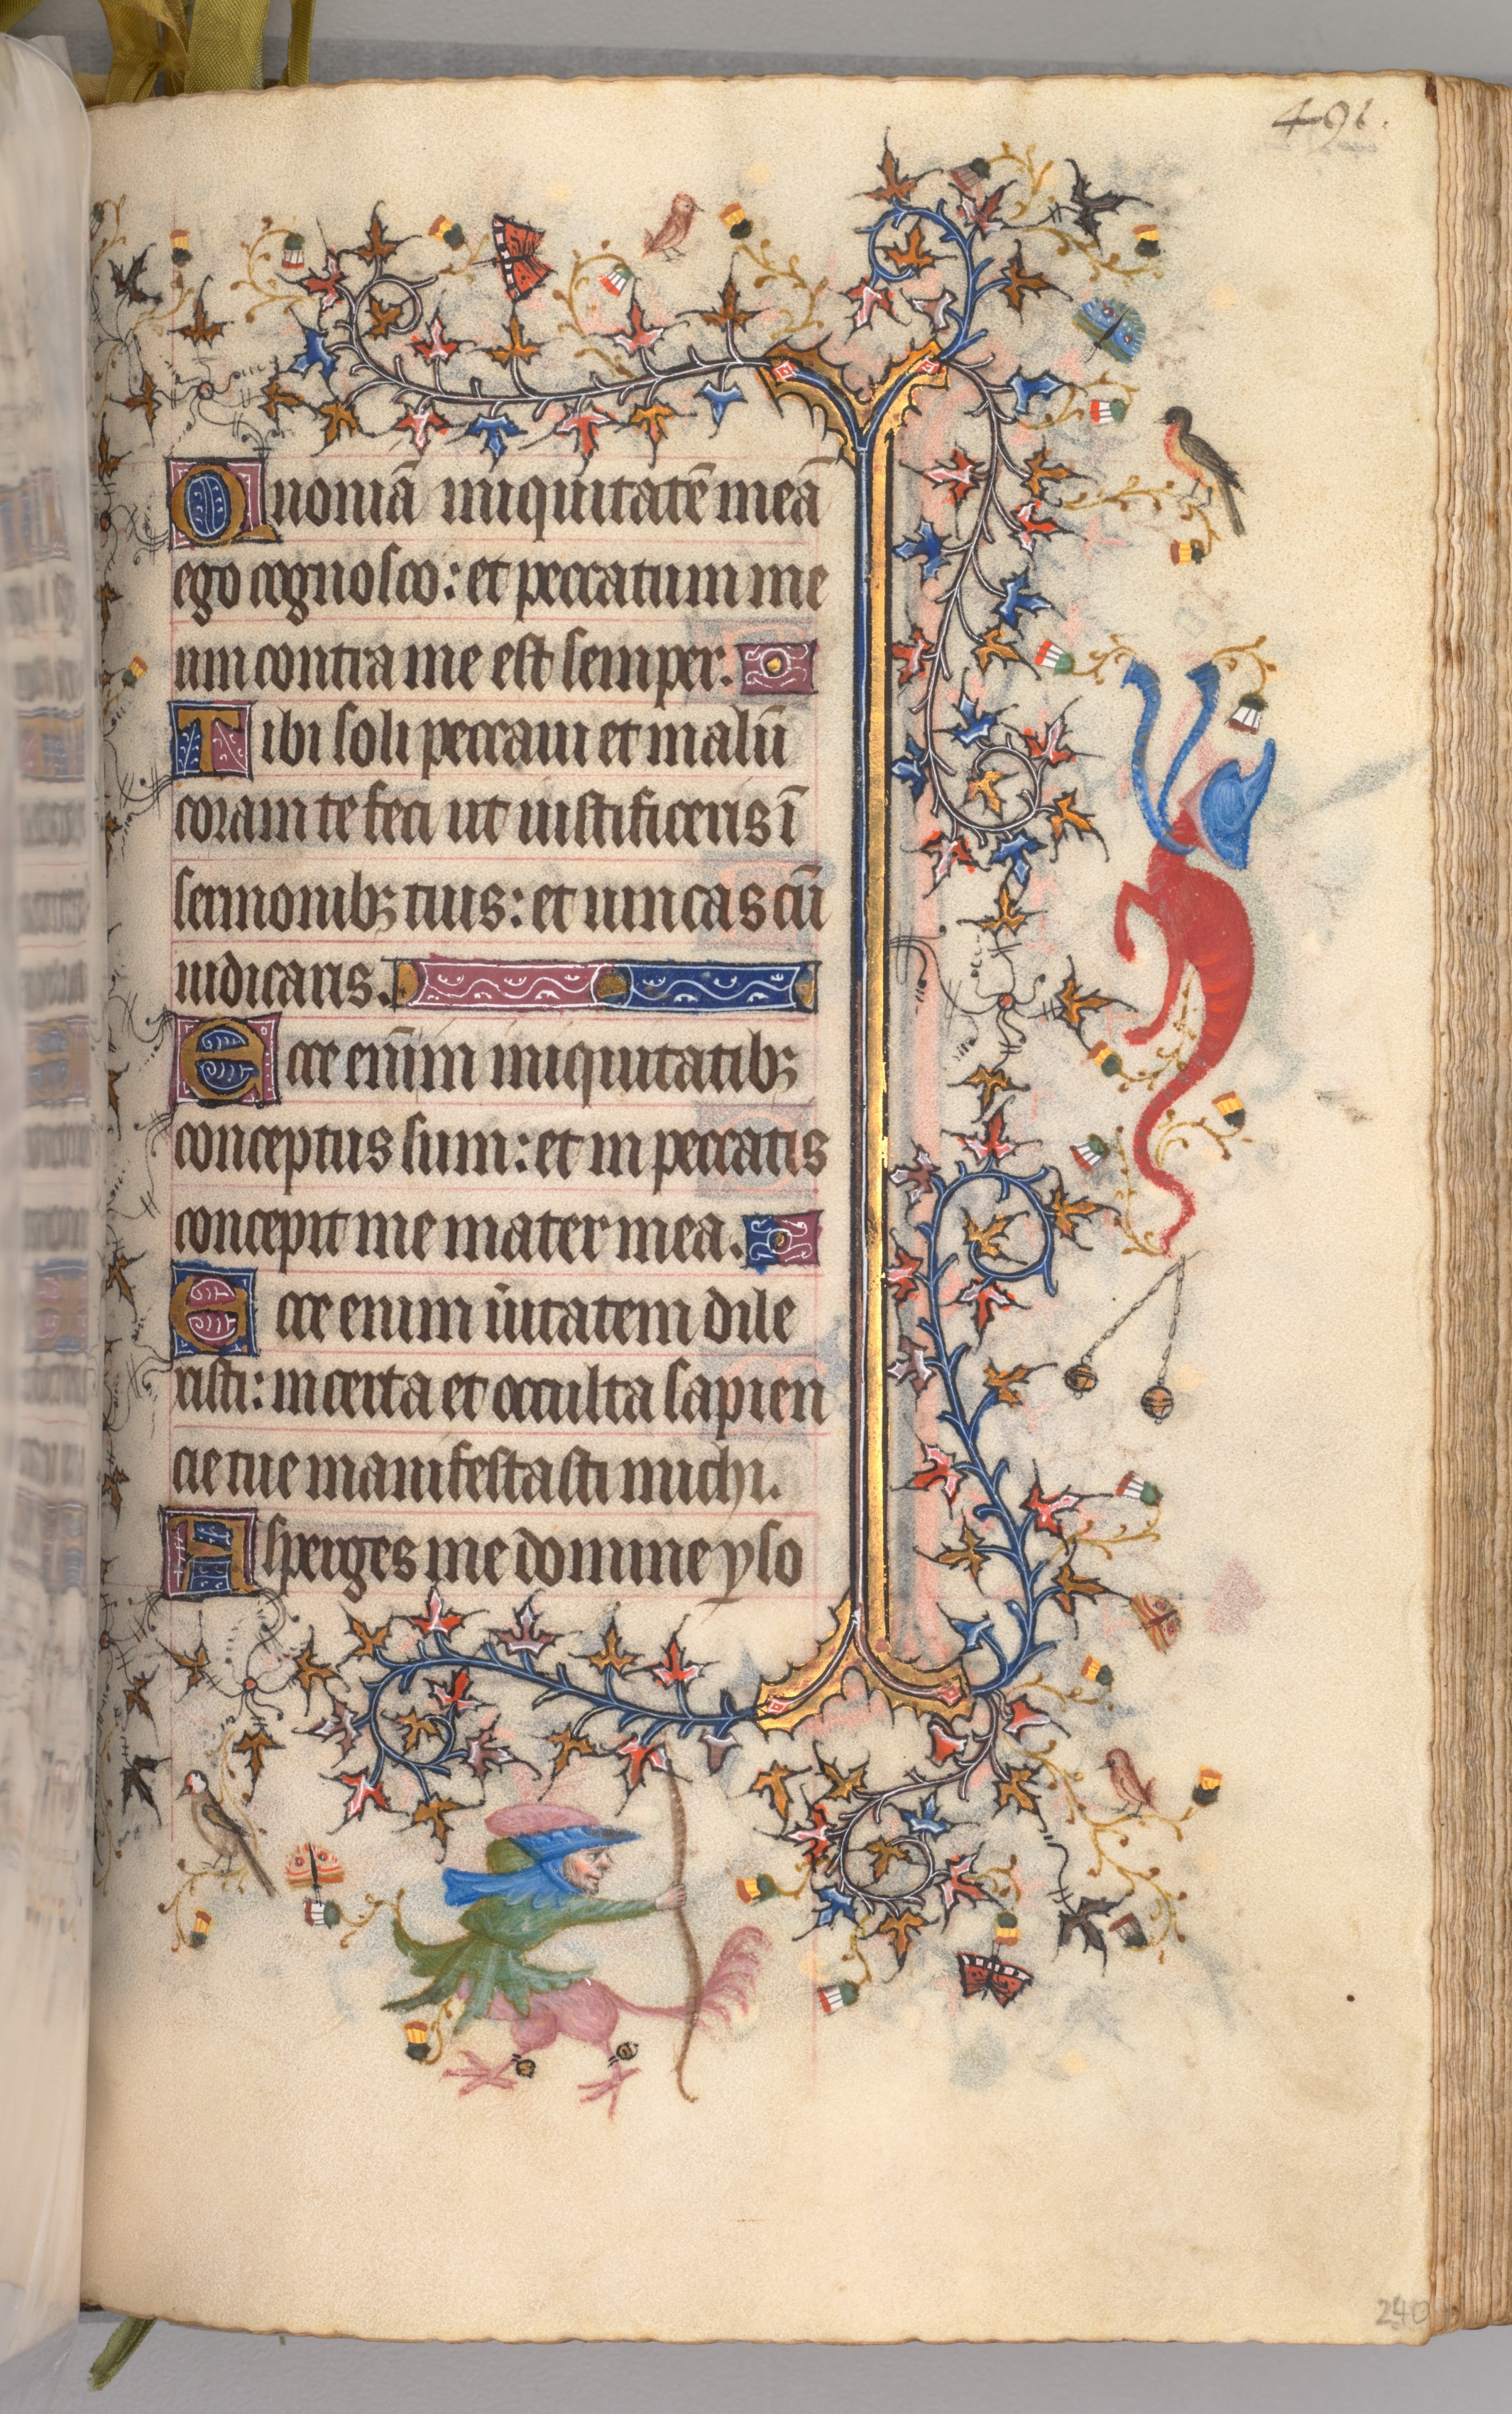 491.
Quoniā iniquitatē meā
ego cognosco: et peccatum me
um contra me est semper.
Tibi soli peccaui et malū
coram te feci ut iustificeris ī
sermonibꝫ tuis: et uincas cū
iudicaris.
Ecce enīm iniquitatibꝫ
conceptus sum: et in peccatis
concepit me mater mea.
Ecce enim ūitatem dile
xisti: incerta et occulta sapien
cie tue manifestasti michi.
Asperges me domine yso
240